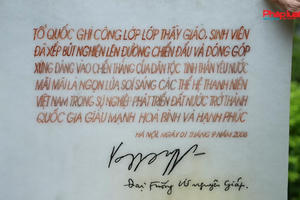 Pháp luật
TỔ QUỐC GHI CÔNG LỚP LỚP THẦY GIÁO, SINH VIÊN
ĐÃ XẾP BÚT NGHIÊN LÊN ĐƯỜNG CHIẾN ĐẤU VÀ ĐÓNG GÓP
XỨNG ĐÁNG VÀO CHIẾN THẮNG CỦA DÂN TỘC. TINH THẦN YÊU NƯỚC
MÃI MÃI LÀ NGỌN LỬA SOI SÁNG CÁC THẾ HỆ THANH NIÊN
VIỆT NAM TRONG SỰ NGHIỆP PHÁT TRIỂN ĐẤT NƯỚC TRỞ THÀNH
QUỐC GIA GIÀU MẠNH HOÀ BÌNH VÀ HẠNH PHÚC
HÀ NỘI, NGÀY 01 THÁNG 9 NĂM 2006
Đại Tướng Võ Nguyên Giáp.